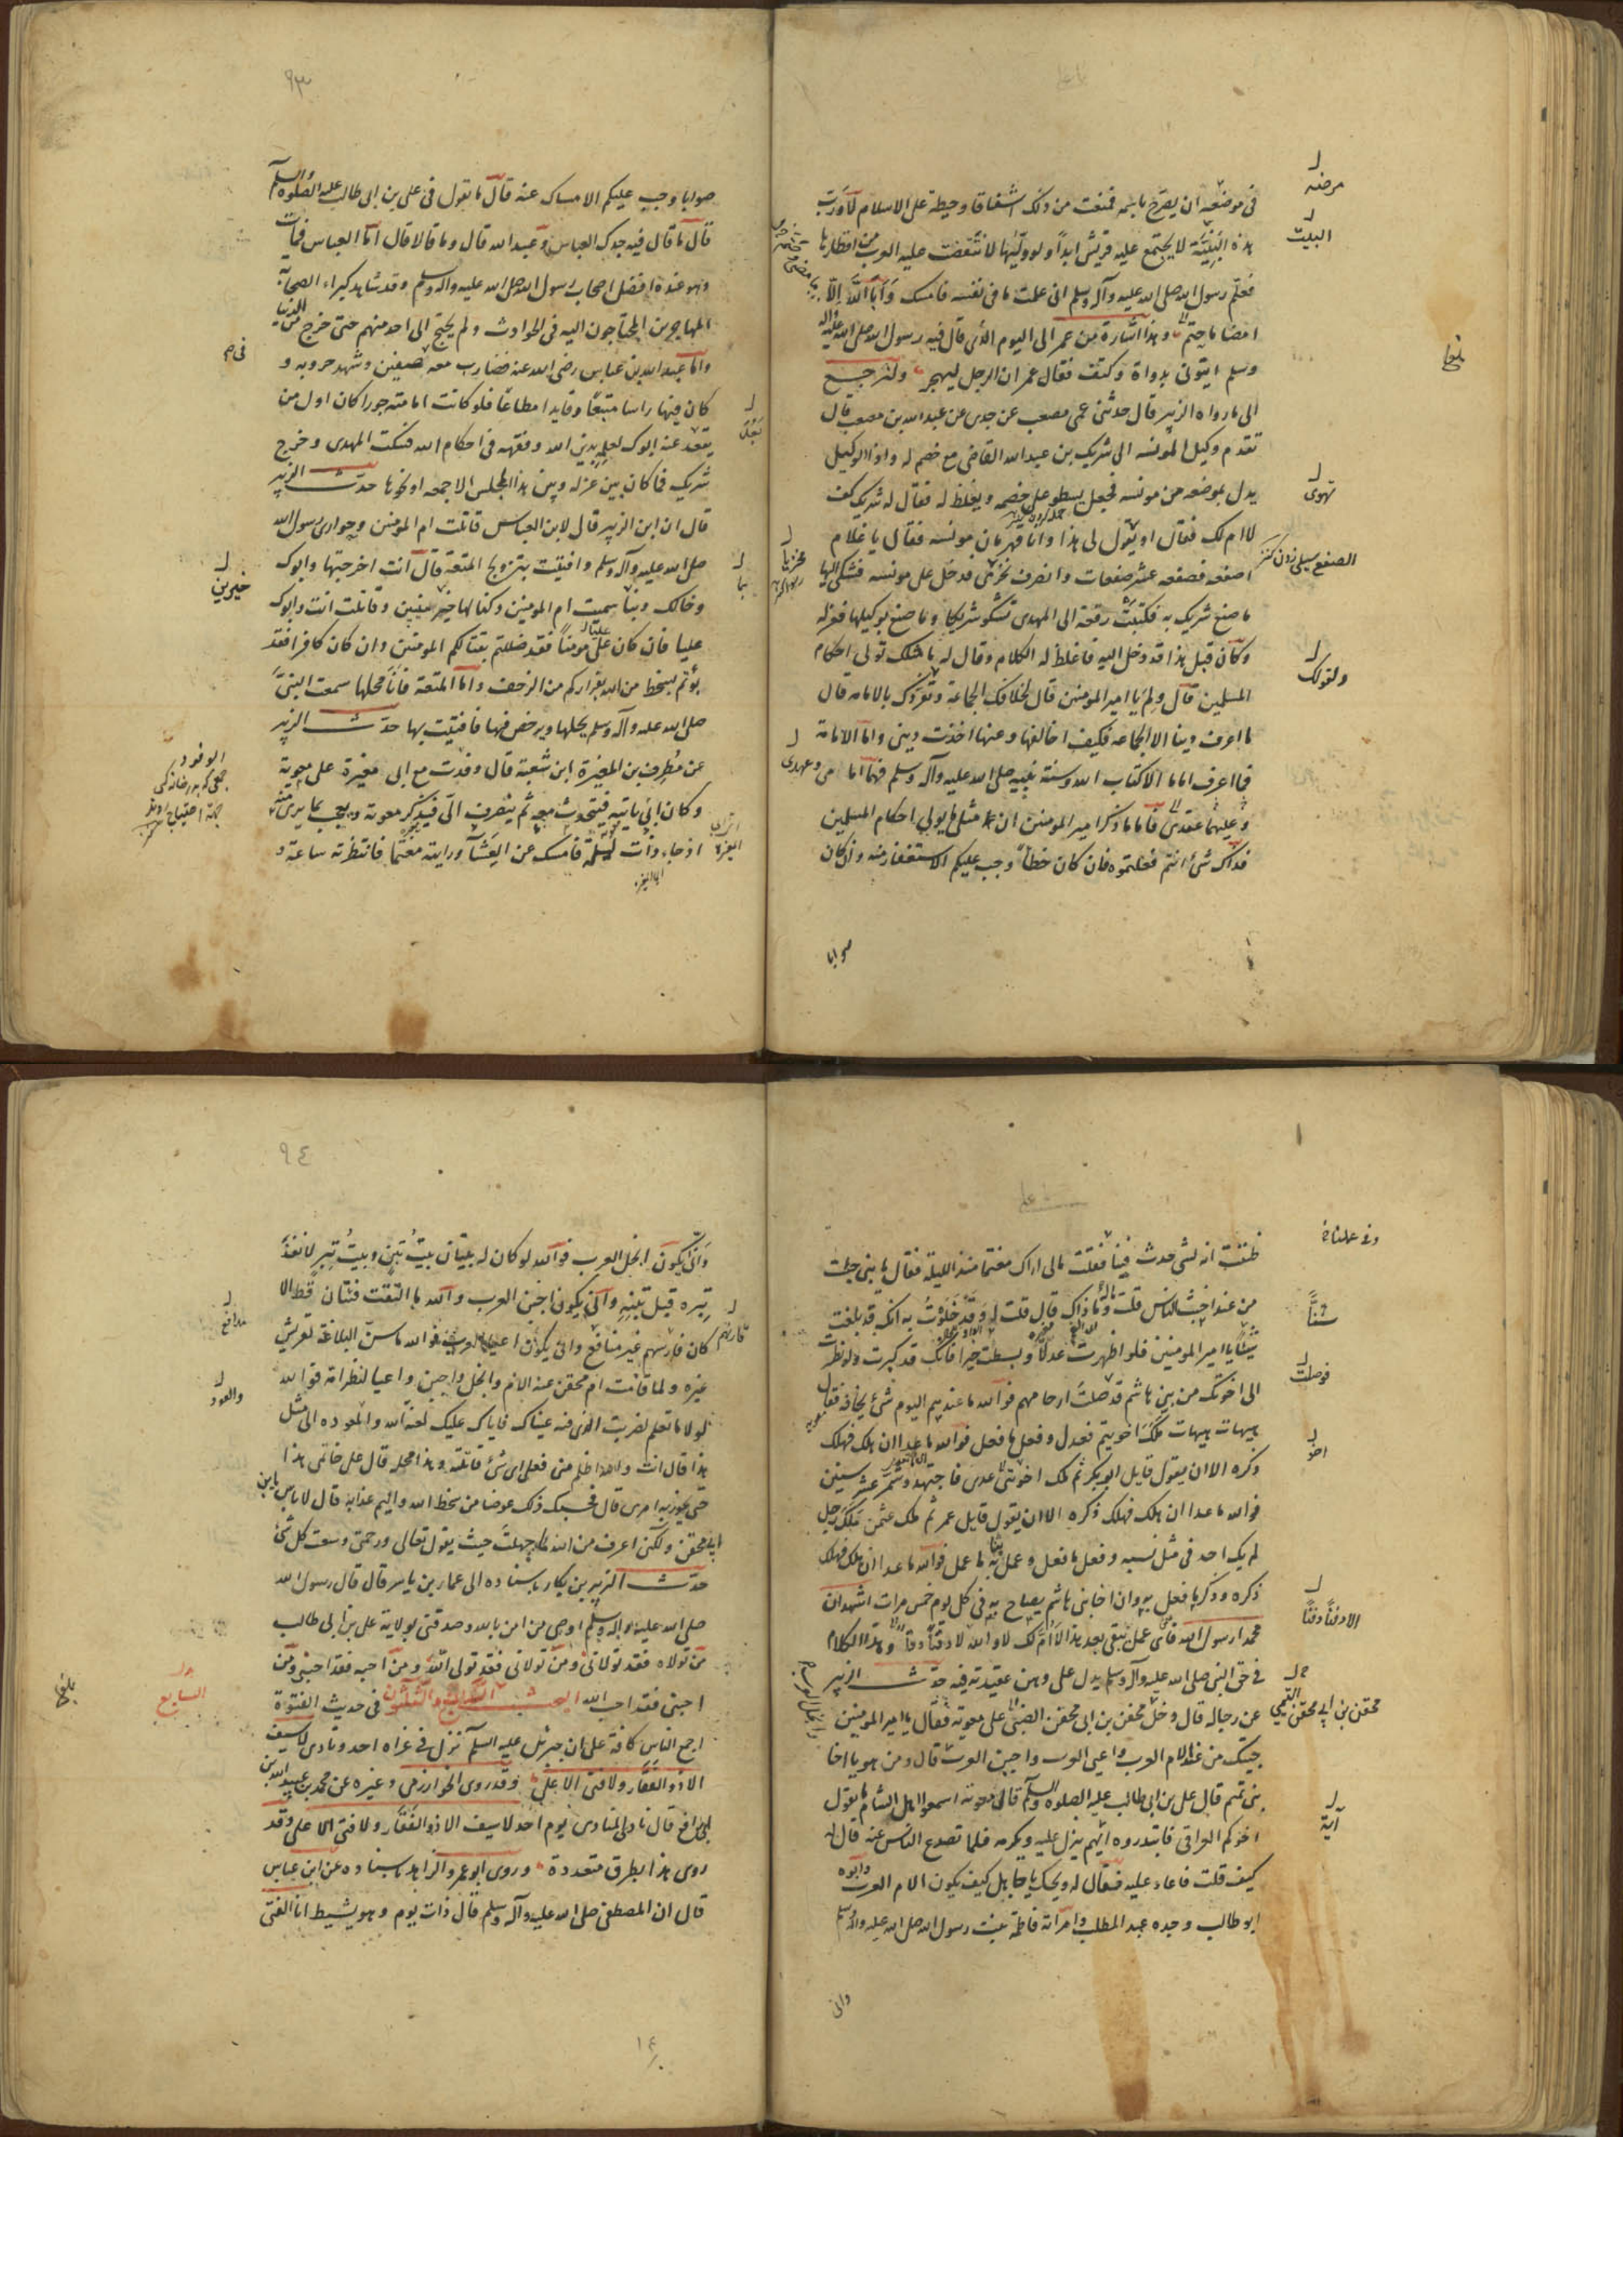 في موضعه ان يصرح باسمه فمنعت من ذلك اشفاقا وحيطة على الاسلام لا ورب
هذه البنية لا يجتمع عليه قريش ابدا ولو وليها لانتقضت عليه العرب من اقطارها
فعلم رسول الله صلى الله عليه وآله وسلم اني علمت ما في نفسه فامسك وابا الله الا
امضا ما حتم وهذا اشارة من عمر الى اليوم الذي قال فيه رسول الله صلى الله عليه وآله
وسلم ايتوني بدواة وكتف فقال عمر ان الرجل ليهجر ولنرجع
الى ما رواه الزبير قال حدثني عمي مصعب عن جدي عن عبدالله بن مصعب قال
تقدم وكيل المونسه الى شريك بن عبد الله القاضي مع خصم له واذا الوكيل
يدل بموضعه من مونسه فجعل يسطو على خصمه ويغلظ له فقال له شريك كف
لا ام لك فقال او تقول لي هذا وانا قهرمان مونسه فقال يا غلام
اصفعه فصفعه عشر صفعات وانصرف بخزي فدخل على مونسه فشكى اليها
ما صنع شريك به فكتبت رقعة الى المهدي تشكو شريكا وما صنع بوكيلها فعزله
وكان قبل هذا قد دخل اليه فاغلظ له الكلام وقال له ما مثلك تولى احكام
المسلمين قال ولم يا امير المومنين قال لخلافك الجماعة وتفردك بالامامه قال
ما اعرف دينا الا الجماعه فكيف اخالفها وعنها اخذت ديني واما الامامة
فما اعرف اماما الا كتاب الله وسنة نبيه صلى الله عليه وآله وسلم فهما امامي
وعليهما عقدي فاما ما ذكر امير المومنين ان ما مثلي يولي احكام المسلمين
فذاك شئ انتم فعلتموه فان كان خطأ وجب عليكم الاستغفار منه وان كان
صوابا
مرضه
البليت
بلغ
تهوى
الصفع سيلي زدن كنز
ولقولك
وعهدي
٩٣
صوابا وجب عليكم الامساك عنه قال ما تقول في علي بن ابي طالب عليه الصلوة والسلم
قال ما قال فيه جدك العباس وعبد الله قال وما قالا قال اما العباس فمات
وهو عنده افضل اصحاب رسول الله صلى الله عليه واله وسلم وقد شاهد كبراء الصحابة
المهاجرين المحتاجون اليه في الحوادث ولم يحتج الى احد منهم حتى خرج من الدنيا
واما عبدالله بن عباس رضي الله عنه فضارب معه صفين وشهد حروبه و
كان فيها راسا متبعا وقايدا مطاعا فلو كانت امامته جورا كان اول من
يقعد عنه ابوك لعلمه بدين الله وفقهه في احكام الله فسكت المهدي وخرج
شريك فما كان بين عزله وبين هذا المجلس الا جمعه او نحوها حدث الزبير
قال ان ابن الزبير قال لابن العباس قاتلت ام المومنين وحواري رسول الله
صلى الله عليه وآله وسلم وافتيت بتزويج المتعة قال انت اخرجتها وابوك
وخالك وبنا سميت ام المومنين وكنا لها خير بنين وقاتلت انت وابوك
عليا فان كان علي مومنا فقد ضللتم بقتالكم المومنين وان كان كافرا فقد
بؤتم بسخط من الله بفراركم من الزحف واما المتعة فانا نحلها سمعت النبي
صلى الله عليه وآله وسلم يحلها ويرخص فيها فافتيت بها حدث الزبير
عن مطرف بن المغيرة ابن شعبة قال وفدت مع ابي مغيرة على معوية
وكان ابي ياتيه فيتحدث معه ثم ينصرف الي فيذكر معوية ويعجب بما يرى منه
اذ جاء ذات ليلة فامسك عن العشاء ورايته مغتما فانتظرته ساعة و
خيرين
بما
الوفود
ظننت انه لشئ حدث فينا فقلت مالي اراك مغتما منذ الليلة فقال يا بني جئت
من عند اخبث الناس قلت وما ذاك قال قلت له وقد خلوت به انك قد بلغت
شيئا يا امير المومنين فلو اظهرت عدلا وبسطت خيرا فانك قد كبرت ولو نظرت
الى اخوتك من بني هاشم فوصلت ارحامهم فوالله ما عندهم اليوم شئ يخافه فقال
هيهات هيهات ملك اخو تيم فعدل وفعل ما فعل فوالله ما عدا ان هلك فهلك
ذكره الا ان يقول قايل ابو بكر ثم ملك اخو بني عدي فاجتهد وشمر عشر سنين
فوالله ما عدا ان هلك فهلك ذكره الا ان يقول قايل عمر ثم ملك عثمن فملك رجل
لم يك احد في مثل نسبه وفعل ما فعل وعمل به ما عمل فوالله ما عدا ان هلك فهلك
ذكره وذكر ما فعل به وان اخا بني هاشم يصاح به في كل يوم خمس مرات اشهد ان
محمدا رسول الله فاي عمل يبقى بعد هذا لا ام لك لا والله الا دفنا دفنا وهذا الكلام
في حق النبي صلى الله عليه وآله وسلم يدل على وهن عقيدته فيه حدث الزبير
عن رجاله قال دخل محفن بن ابي محفن الضبي على معوية فقال يا امير المومنين
جيتك من عند الام العرب واعيى العرب واجبن العرب قال ومن هو يا اخا
بني تميم قال علي بن ابي طالب عليه الصلوة والسلم قال معوية اسمعوا اهل الشام ما يقول
اخوكم العراقي فابتدروه ايهم ينزل عليه ويكرمه فلما تصدع الناس عنه قال له
كيف قلت فاعاد عليه فقال له ويحك يا جاهل كيف يكون الام العرب وابوه
ابو طالب وجده عبد المطلب وامرأته فاطمة بنت رسول الله صلى الله عليه واله وسلم
واني
فوصلت
اخو
الا دفنا دفنا
محفن بن ابي محفن التميمي
آية
٩٤
واني يكون ابخل العرب فوالله لو كان له بيتان بيت تبن وبيت تبر لانفد
تبره قبل تبنه واني يكون اجبن العرب والله ما التقت فئتان قط الا
كان فارسهم غير مدافع واني يكون اعيى العرب فوالله ما سن البلاغة لقريش
غيره ولما قامت ام محفن عنه الام وابخل واجبن واعيا لبظر امه فوالله
لولا ما تعلم لضربت الذي فيه عيناك فاياك عليك لعنة الله والعوده الى مثل
هذا قال انت والله اظلم مني فعلى اي شئ قاتلته وهذا محله قال على خاتمي هذا
حتى يجوز به امري قال فحسبك ذلك عوضا من سخط الله واليم عذابه قال لا يا ابن
ابي محفن ولكني اعرف من الله ما جهلت حيث يقول تعالى ورحمتي وسعت كل شئ
حدث الزبير بن بكار باسناده الى عمار بن ياسر قال قال رسول الله
صلى الله عليه واله وسلم اوصي من امن بالله وصدقني بولاية علي بن ابي طالب
من تولاه فقد تولاني ومن تولاني فقد تولى الله ومن احبه فقد احبني ومن
احبني فقد احب الله البحث السابع والثلثون في حديث الفتوة
اجمع الناس كافة على ان جبرئيل عليه السلم نزل في غزاه احد ونادى لا سيف
الا ذو الفقار ولا فتى الا علي وقد روى الخوارزمي وغيره عن محمد بن عبيد الله بن
ابي رافع قال نادى المنادى يوم احد لا سيف الا ذو الفقار ولا فتى الا علي وقد
روى هذا بطرق متعددة وروى ابو عمر والزاهد باسناده عن ابن عباس
قال ان المصطفى صلى الله عليه وآله وسلم قال ذات يوم وهو نشيط انا الفتى
مدافع
فارسهم
والعود
السابع
بلغ
١٤